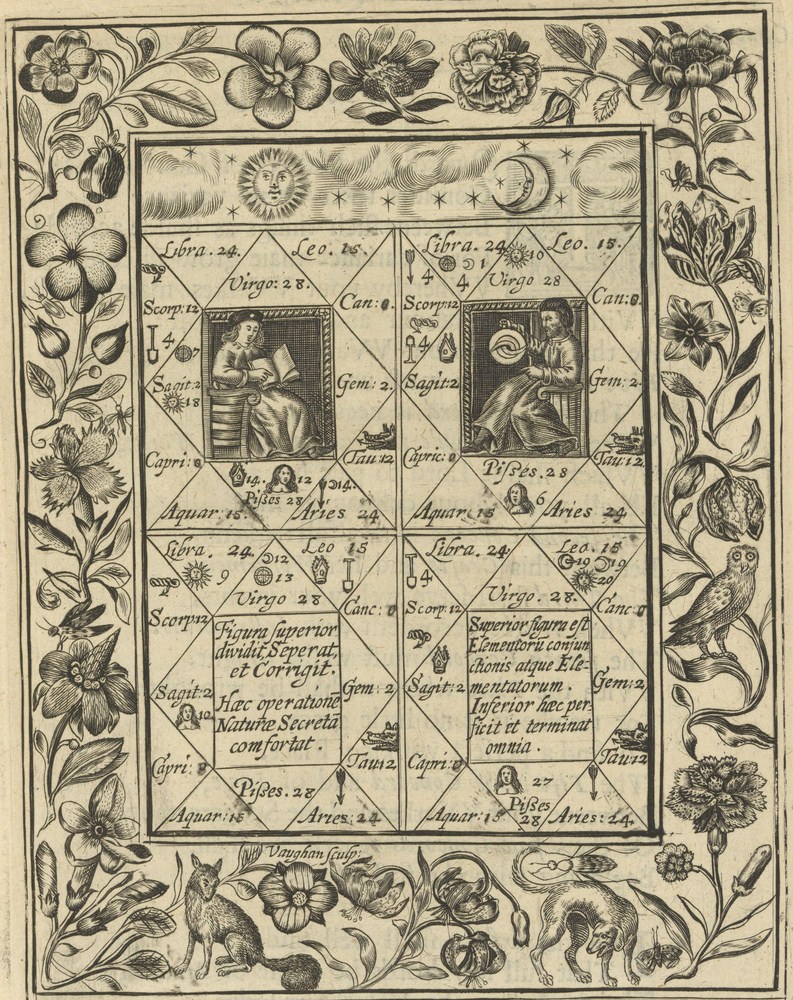 Libra. 24. Leo. 15
Virgo: 28.
Scorp: 12 Can: 0.
4
7
Sagit: 2 Gem: 2.
18
Capri: 0 Tau: 12
14. 12 14.
Pißes 28
Aquar: 15. Aries 24
Libra. 24. 10 Leo. 15.
4 1
4
Virgo 28
Scorp: 12 Can: 0.
4
Sagit: 2 Gem: 2.
Capric: 0 Tau: 12
Pißes. 28
6
Aquar: 15 Aries 24
Libra. 24. 12 Leo 15
9 13
Virgo 28
Scorp: 12 Canc: 0
Figura superior
dividit, Seperat,
et Corrigit.
Hæc operationẽ
Naturæ Secretã
comfortat.
Sagit: 2 Gem: 2
10
Capri: 0 Tau: 12
Pißes. 28
Aquar: 15 Aries: 24
Libra. 24. Leo. 15
4 19 19
20
Virgo. 28.
Scorp: 12 Canc: 0
Superior figura est
Elementorũ conjun
ctionis atque Ele-
mentatorum.
Inferior hæc per-
ficit et terminat
omnia.
Sagit: 2 Gem: 2
Capri: 0 Tau: 12
27
Pißes
28
Aquar: 15 Aries: 24
Vaughan sculp: